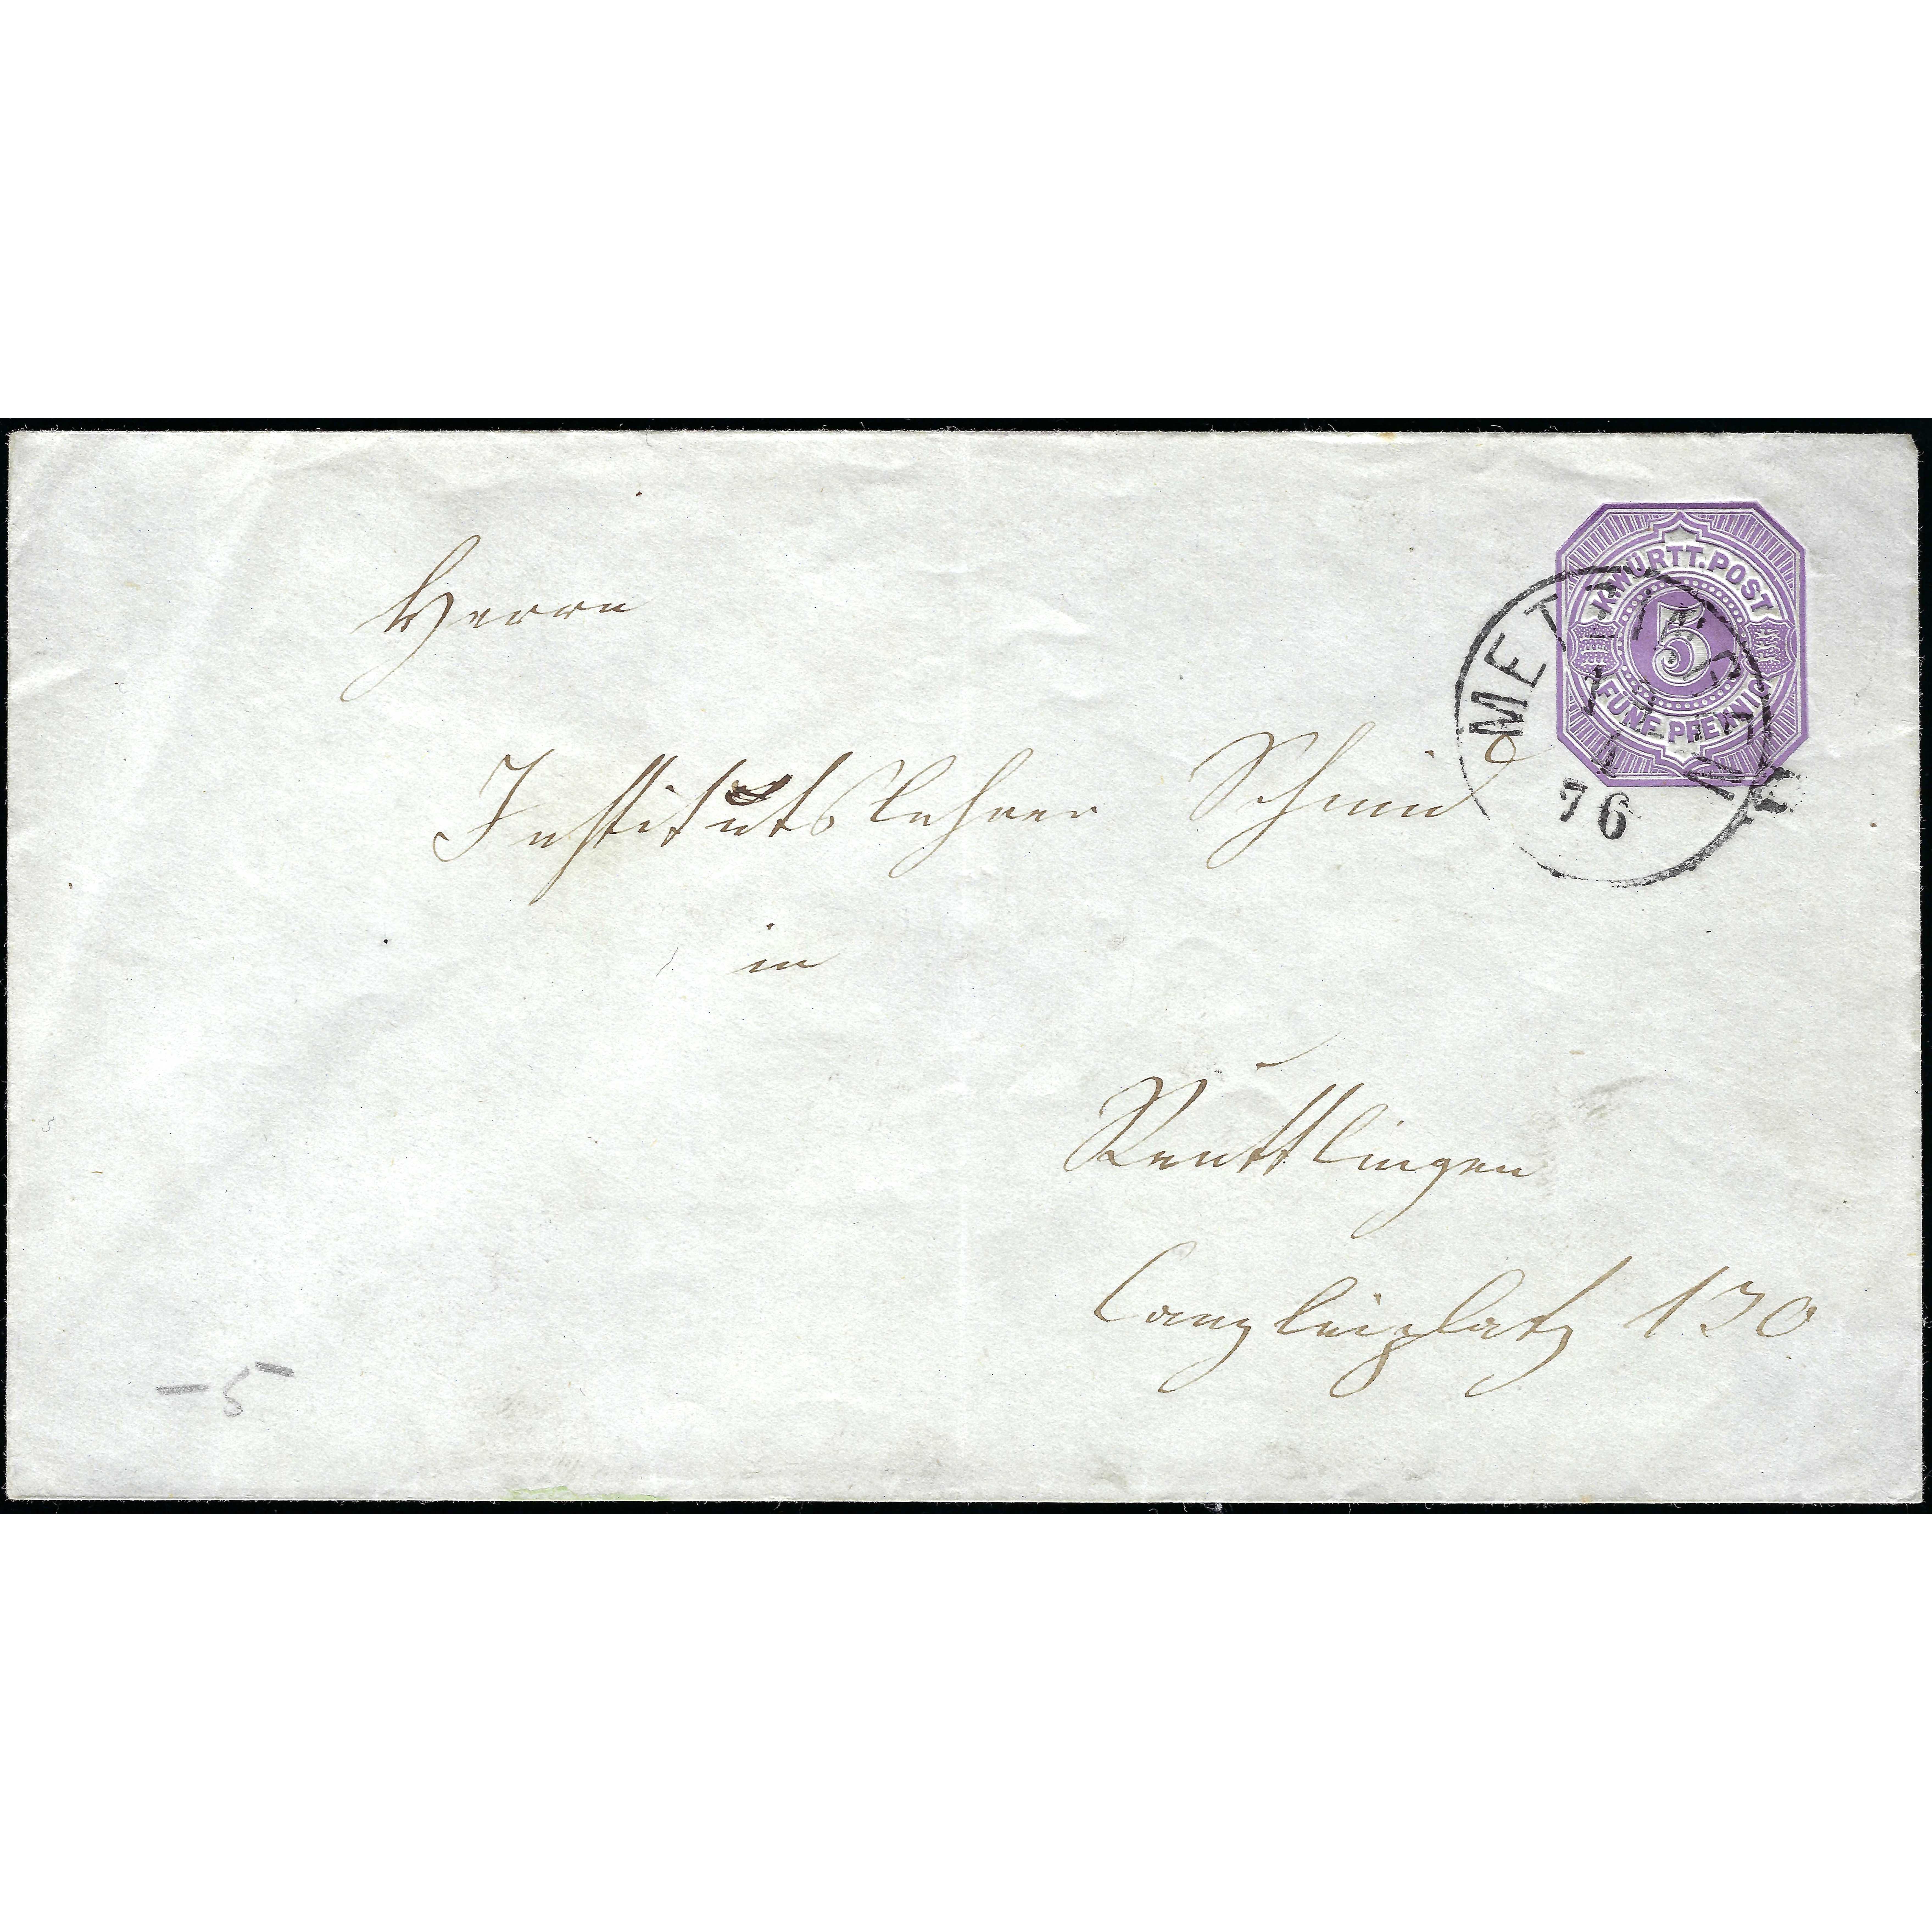 K. WÜRTT. POST
5
FÜNF PFENNIG
METZINGEN
4
76
Herrn
Institutslehrer Schmid
in
Reuttlingen
Canzleiplatz 130
- 5 -